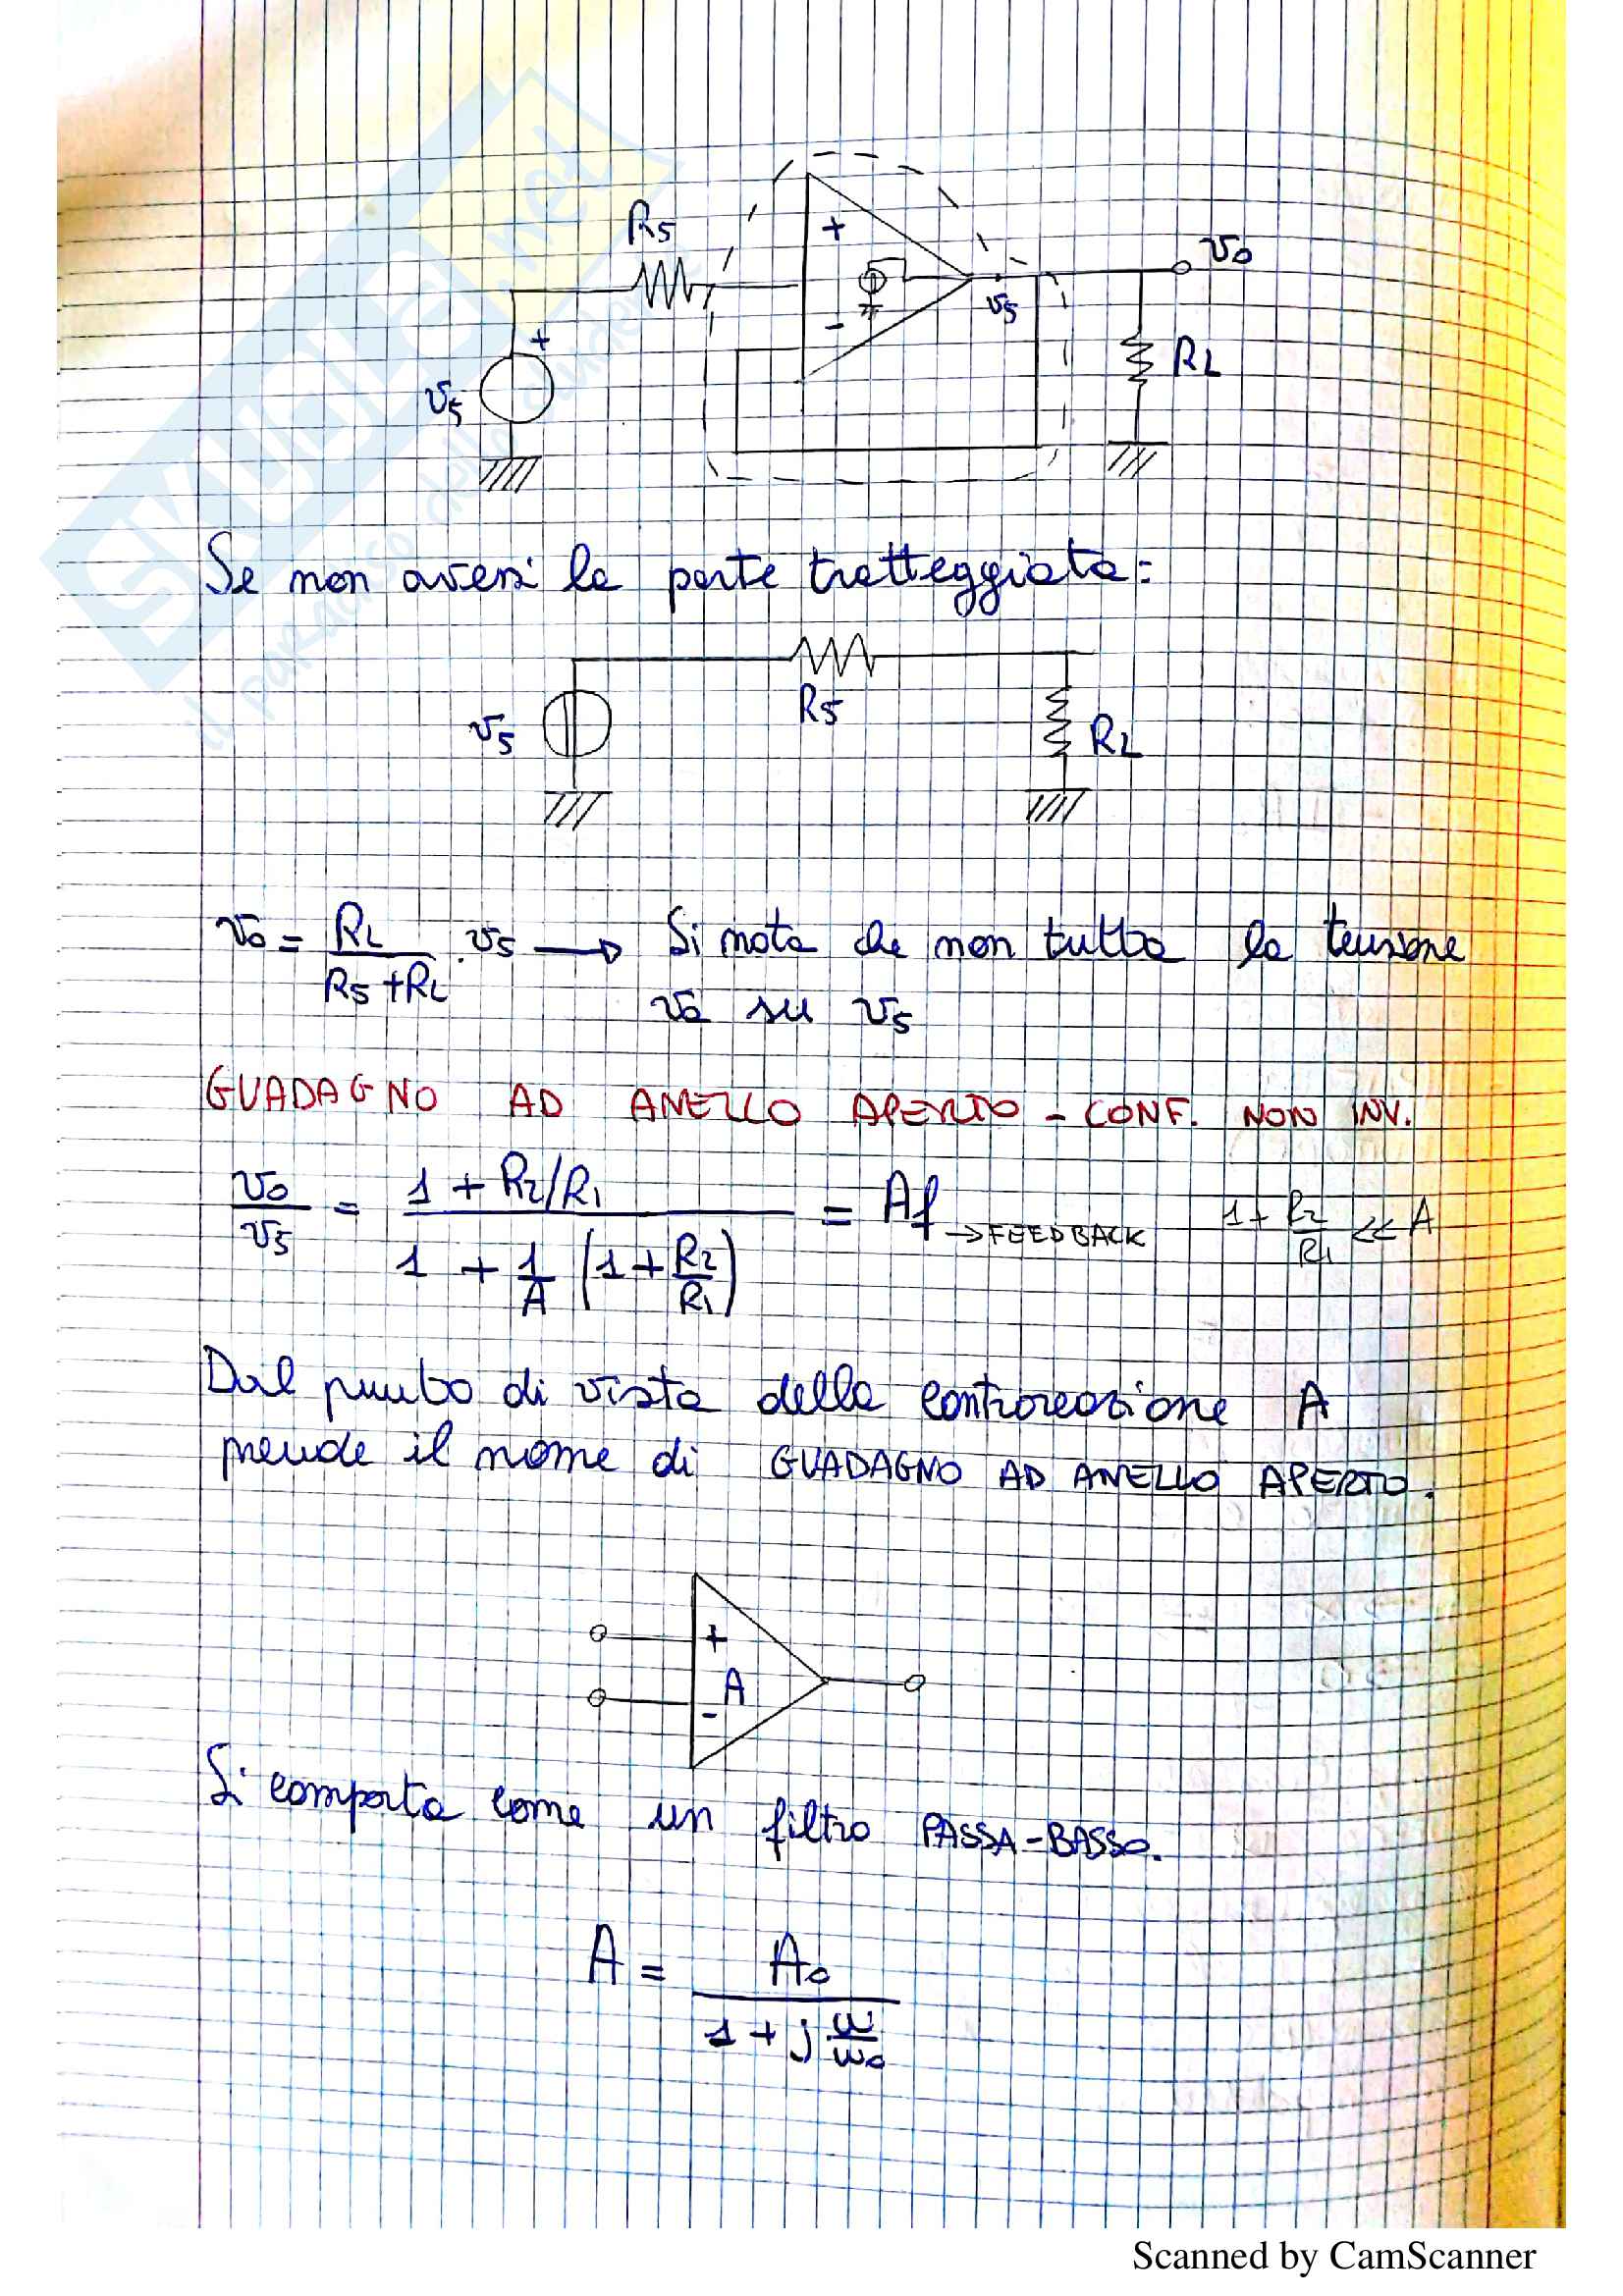 R5
+
vo
+
-
v5
RL
v5
Se non avessi la parte tratteggiata:
R5
v5
RL
vo = RL / (R5 + RL) · v5 → Si nota che non tutta la tensione
va su v5
GUADAGNO AD ANELLO APERTO - CONF. NON INV.
vo / v5 = (1 + R2/R1) / (1 + 1/A (1 + R2/R1)) = Af → FEEDBACK 1 + R2/R1 << A
Dal punto di vista della controreazione A
prende il nome di GUADAGNO AD ANELLO APERTO.
+
A
-
Si comporta come un filtro PASSA-BASSO.
A = Ao / (1 + j ω/ωo)
SKUOLA.net
il paradiso dello studente
Scanned by CamScanner